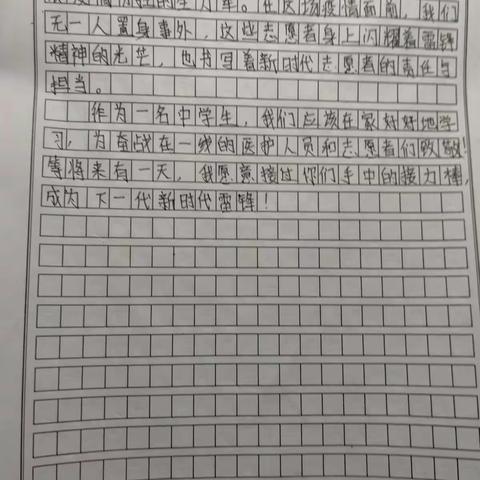 的生力军。在这场疫情面前，我们
无一人置身事外，这些志愿者身上闪耀着雷锋
精神的光芒，也书写着新时代志愿者的责任与
担当。
作为一名中学生，我们应该在家好好地学
习，为奋战在一线的医护人员和志愿者们致敬！
等将来有一天，我愿意接过你们手中的接力棒，
成为下一代新时代雷锋！